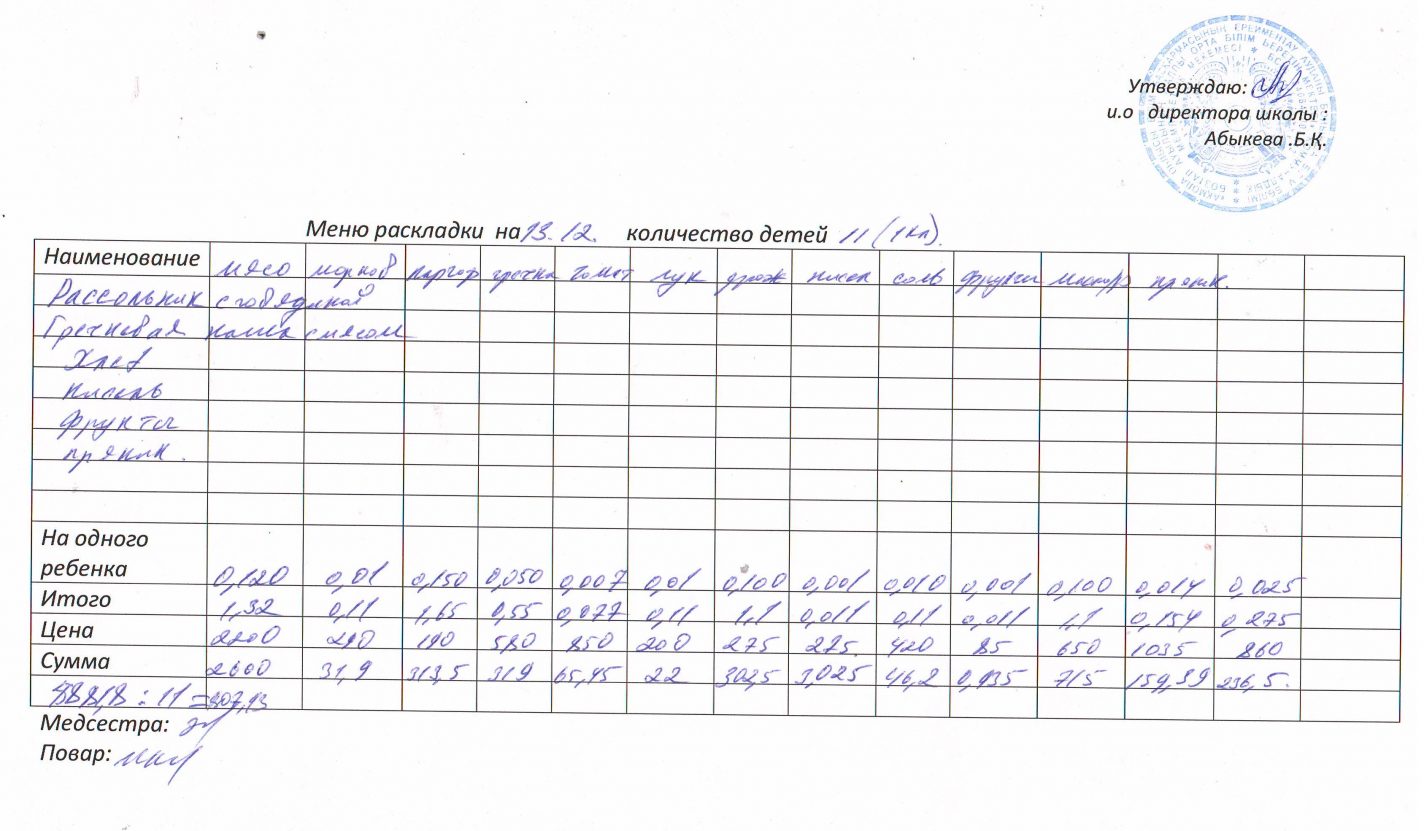 Утверждаю:
и.о директора школы :
Абыкева .Б.Қ.
Меню раскладки на 13.12. количество детей 11 (1 кл).
Наименование мясо морков картоф гречка томат лук дрож кисел соль фрукты масло пряник.
Рассольник с говядиной
Гречневая каша с мясом
Хлеб
кисель
фрукты
пряник.
На одного
ребенка 0,120 0,01 0,150 0,050 0,007 0,01 0,100 0,001 0,010 0,001 0,100 0,014 0,025
Итого 1,32 0,11 1,65 0,55 0,077 0,11 1,1 0,011 0,11 0,011 1,1 0,154 0,275
Цена 2200 290 190 580 850 200 275 275. 420 85 650 1035 860
Сумма 2600 31,9 313,5 319 65,45 22 302,5 3,025 46,2 0,935 715 159,39 236,5.
: 11 =
Медсестра:
Повар: